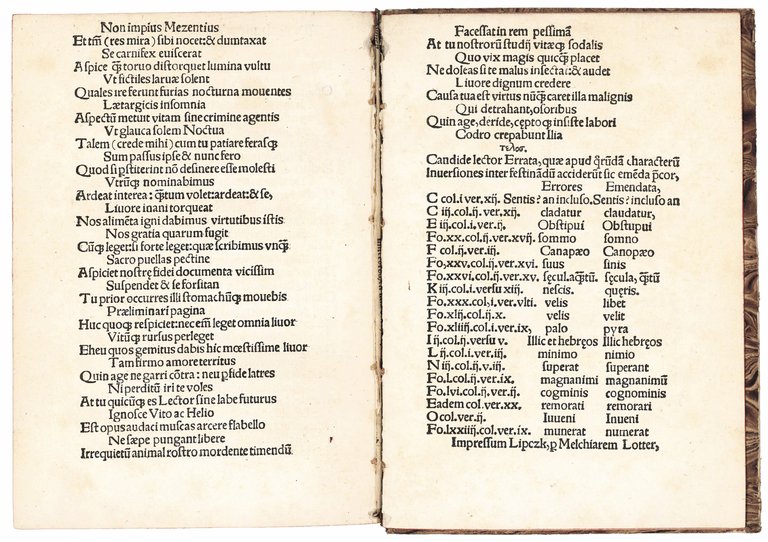 Non impius Mezentius
Et tm̄ (res mira) sibi nocet:& dumtaxat
Se carnifex euiscerat
Aspice q̄ꝫ toruo distorquet lumina vultu
Vt fictiles laruæ solent
Quales ire ferunt furias nocturna mouentes
Lætargicis insomnia
Aspectū metuit vitam sine crimine agentis
Vt glauca solem Noctua
Talem (crede mihi) cum tu patiare ferasqꝫ
Sum passus ipse & nunc fero
Quod si pstiterint nō desinere esse molesti
Vtrūqꝫ nominabimus
Ardeat interea: q̄tum volet: ardeat: & se,
Liuore inani torqueat
Nos alimēta igni dabimus virtutibus istis
Nos gratia quarum fugit
Cūqꝫ leget: si forte leget: quæ scribimus vnqꝫ
Sacro puellas pectine
Aspiciet nostrę fidei documenta vicissim
Suspendet & se forsitan
Tu prior occurres illi stomachūqꝫ mouebis
Præliminari pagina
Huc quoqꝫ respiciet: nec em̄ leget omnia liuor
Vitūqꝫ rursus perleget
Eheu quos gemitus dabis hic mœstissime liuor
Tam firmo amore territus
Quin age ne garri cōtra: neu pfide latres
Ni perditū iri te voles
At tu quicūqꝫ es Lector sine labe futurus
Ignosce Vito ac Helio
Est opus audaci muscas arcere flabello
Ne sæpe pungant libere
Irrequietū animal rostro mordente timendū.
Facessat in rem pessimā
At tu nostrorū studij vitæqꝫ sodalis
Quo vix magis quicq̄ꝫ placet
Ne doleas si te malus insectat: & audet
Liuore dignum credere
Causa tua est virtus nūq̄ꝫ caret illa malignis
Qui detrahant, osoribus
Quin age, deride, cęptoqꝫ insiste labori
Codro crepabunt Ilia
τελος.
Candide lector Errata, quæ apud q̄rūdā characterū
Inuersiones inter festinādū acciderūt sic emēda pcor,
Errores Emendata,
C col.i ver.xij. Sentis? an incluso. Sentis? incluso an
C iij.col.ij.ver.xij. cladatur claudatur,
E iij.col.i.ver.ij. Obstipui Obstupui
Fo.xx.col.ij.ver.xvij. sommo somno
F col.ij.ver.iij. Canapæo Canopæo
Fo,xxv.col.ij.ver.xvi. suus sinis
Fo.xxvi.col.ij.ver.xv. sęcul.acq̄tū. sęcula, q̄tū
K iij.col.i.versu xiij. nescis. quęris.
Fo.xxx.col,i.ver.vlti. velis libet
Fo.xlij.col.ij.x. velis velit
Fo.xliiij.col.i.ver.ix, palo pyra
I ij.col.ij.versu v. Illic et hebręos Illic hebręos
L ij.col.i.ver.iij. minimo nimio
N iij.col.ij.v.iij. superat superant
Fo.l.col.ij.ver.ix. magnanimi magnanimū
Fo.lvi.col.ij.ver.ij. cogminis cognominis
Eadem col.ver.xx. remorati remorari
O col.ver.ij. Iuueni Inueni
Fo.lxxiiij.col.ver.ix. munerat numerat
Impressum Lipczk, p Melchiarem Lotter,